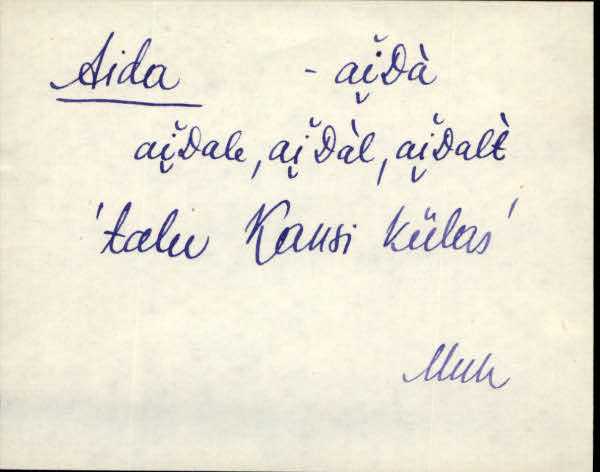 Aida - ai̯ᴅà
ai̯ᴅale, ai̯ᴅàl, ai̯ᴅalt̀
'talu Kansi külas'
Muh